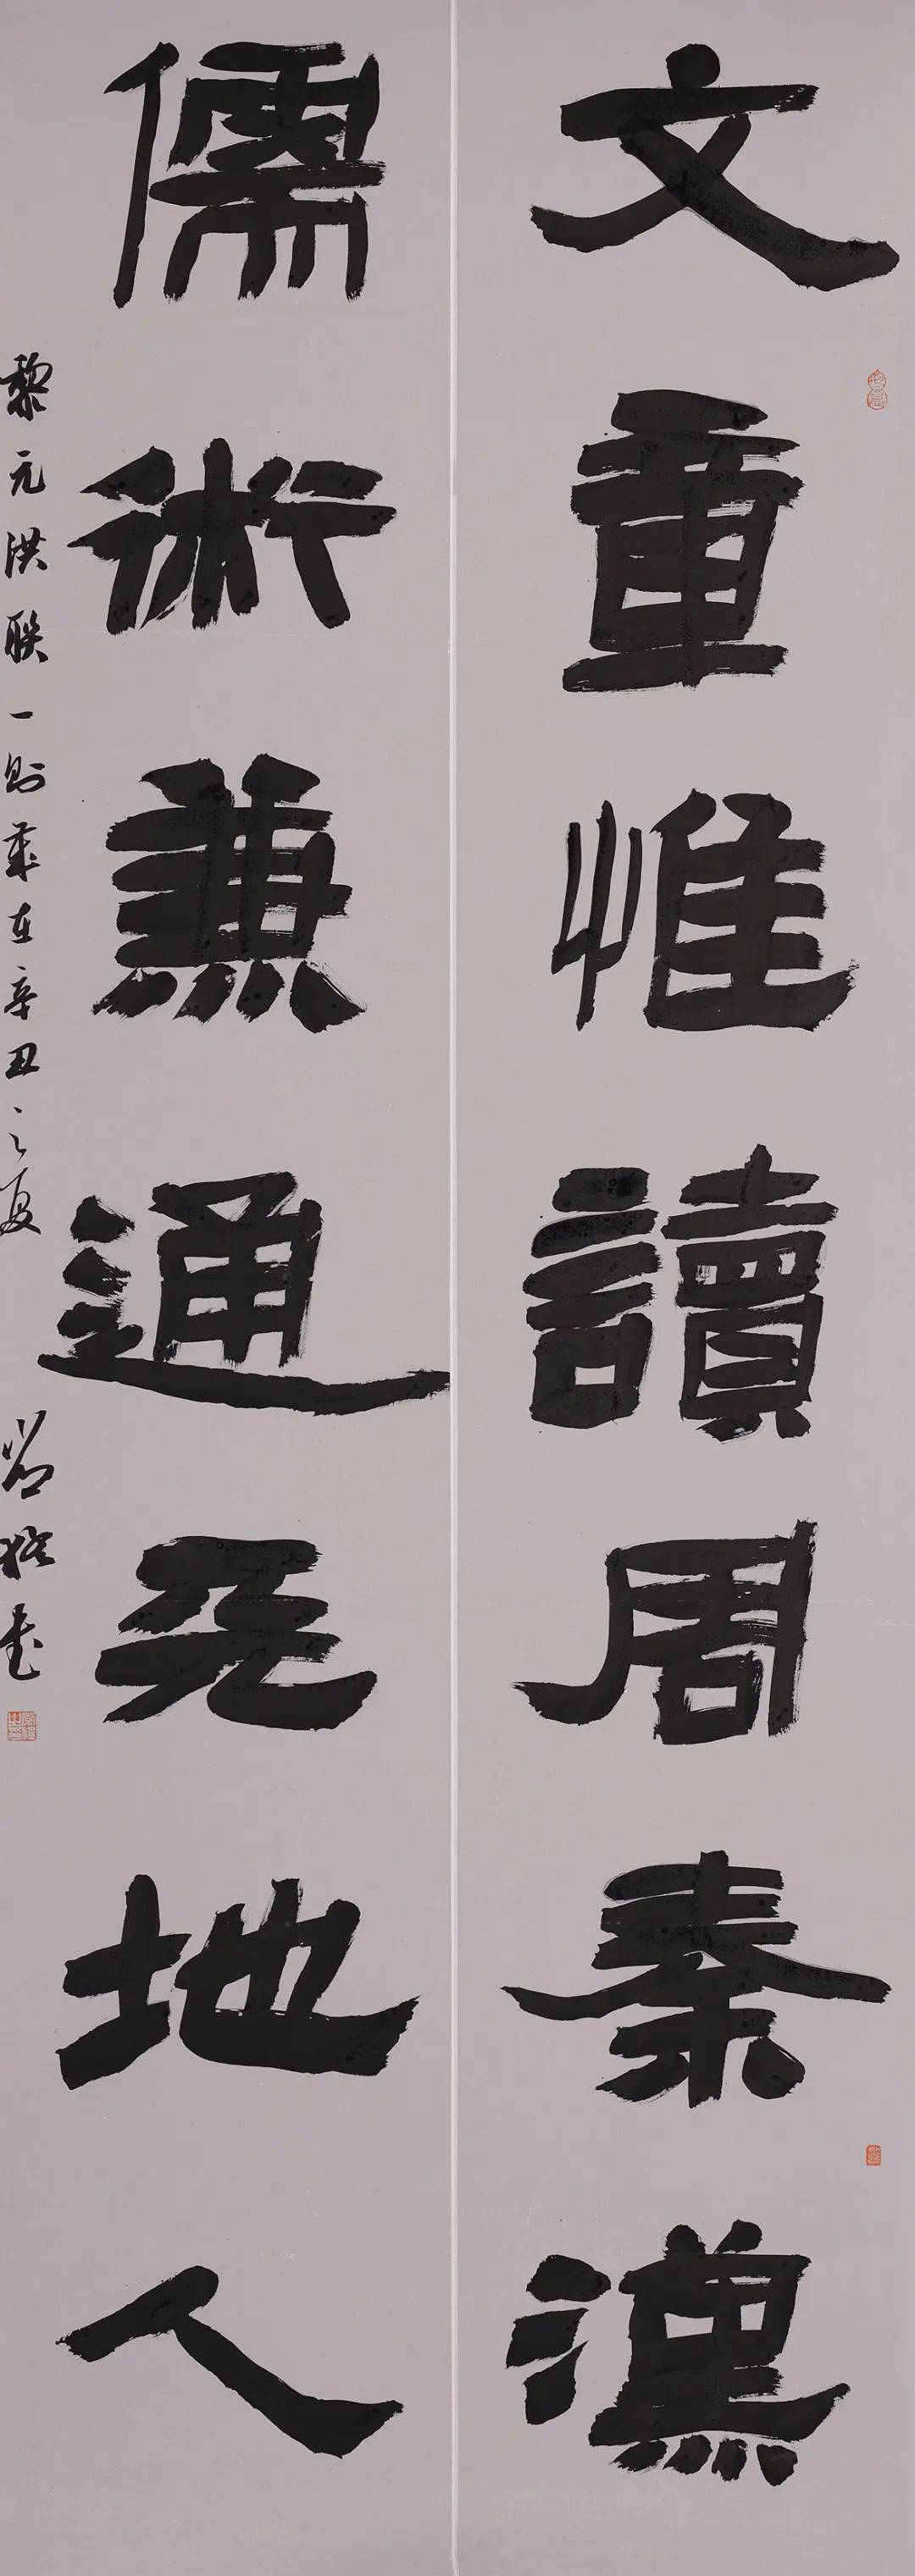 文重惟讀周秦漢
儒術兼通天地人
黎元洪聯一則歲在辛丑之夏